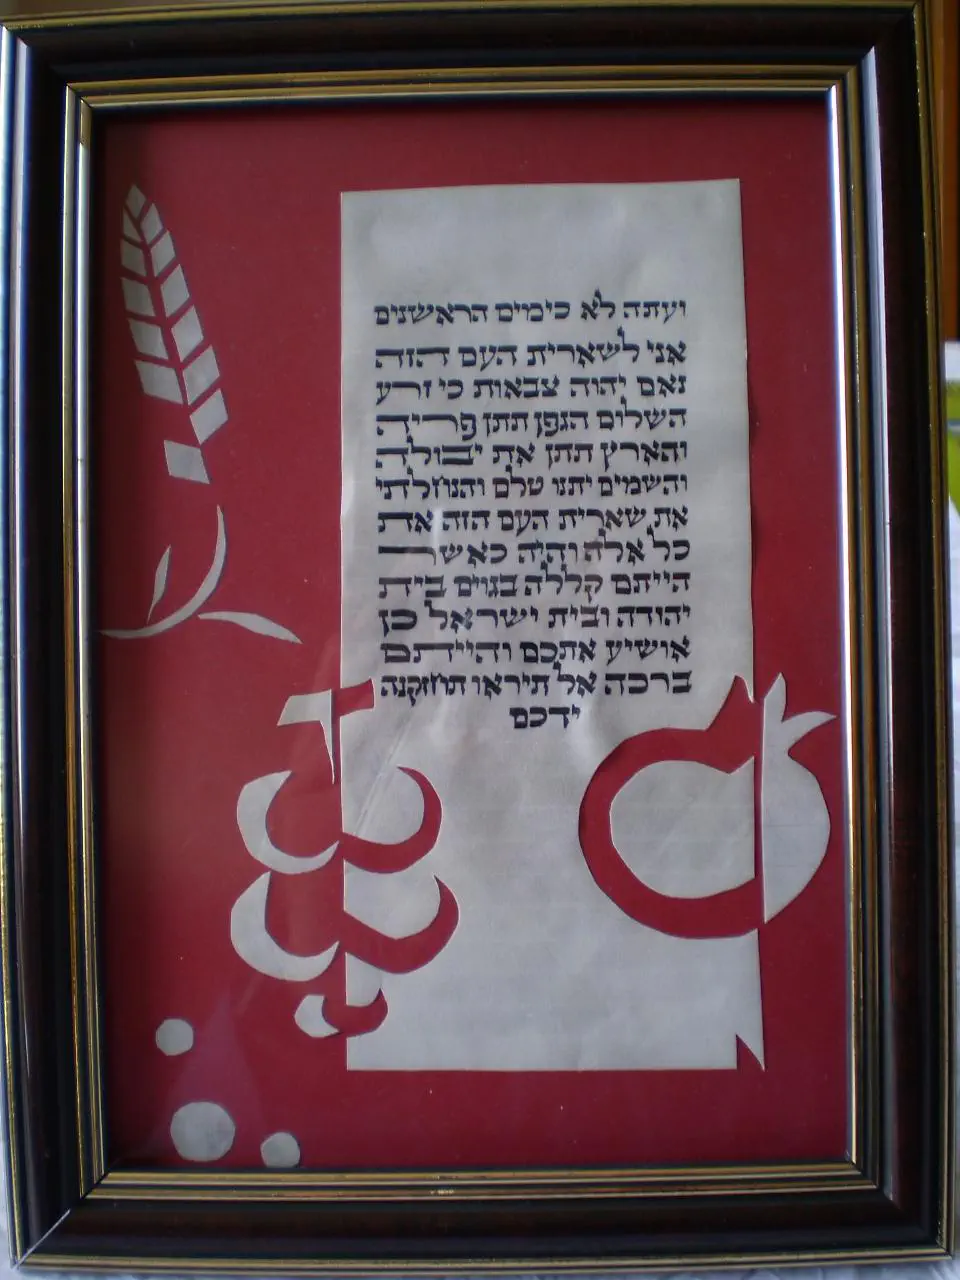 ועתה לא כימים הראשנים
אני לשארית העם הזה
נאם יהוה צבאות כי זרע
השלום הגפן תתן פריה
והארץ תתן את יבולה
והשמים יתנו טלם והנחלתי
את שארית העם הזה את
כל אלה והיה כאשר
הייתם קללה בגוים בית
יהודה ובית ישראל כן
אושיע אתכם והייתם
ברכה אל תיראו תחזקנה
ידכם